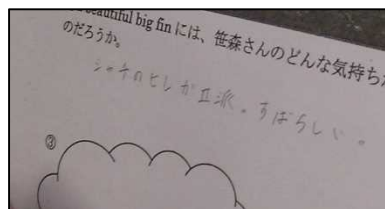 beautiful big fin には、笹森さんのどんな気持ちが
のだろうか。
シャチのヒレが立派。すばらしい。
③